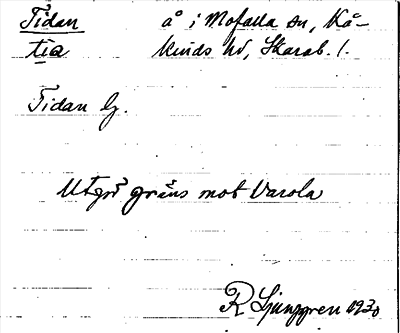 Tidan å i Mofalla sn, Kå-
tia kinds hd, Skarab. l.
Tidan lj.
Utgör gräns mot Varola
R Ljunggren 1930